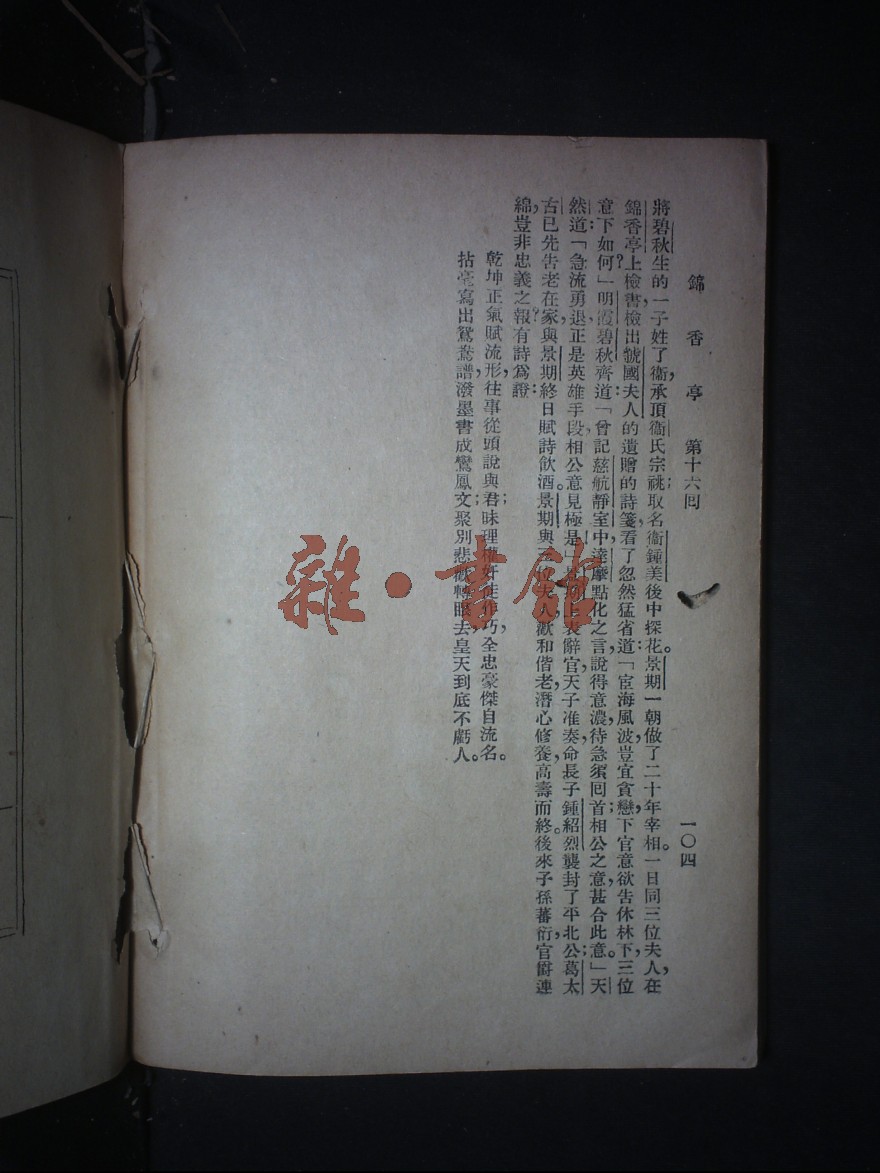 錦香亭 第十六囘 一〇四
將碧秋生的一子姓了衞，承頂衞氏宗祧；取名衞鍾美後中探花。景期一朝做了二十年宰相。一日同三位夫人，在
錦香亭上檢書，檢出虢國夫人的遺贈的詩箋，看了忽然猛省道：「宦海風波，豈宜貪戀，下官意欲告休林下，三位
意下如何？」明霞碧秋齊道：「曾記慈航靜室中達摩點化之言，說得意濃，待急須囘首；相公之意，甚合此意。」天
然道：「急流勇退，正是英雄手段，相公意見極是」景期上表辭官，天子准奏，命長子鍾紹烈襲封了平北公；葛太
古已先告老在家，與景期終日賦詩飲酒。景期與三位夫人，歡和偕老，潛心修養，高壽而終。後來子孫蕃衍，官爵連
綿，豈非忠義之報？有詩爲證：
乾坤正氣賦流形，往事從頭說與君；昧理權奸徒作巧，全忠豪傑自流名。
拈毫寫出鴛鴦譜，潑墨書成鸞鳳文；聚別悲歡轉眼去，皇天到底不虧人。
雜·書館